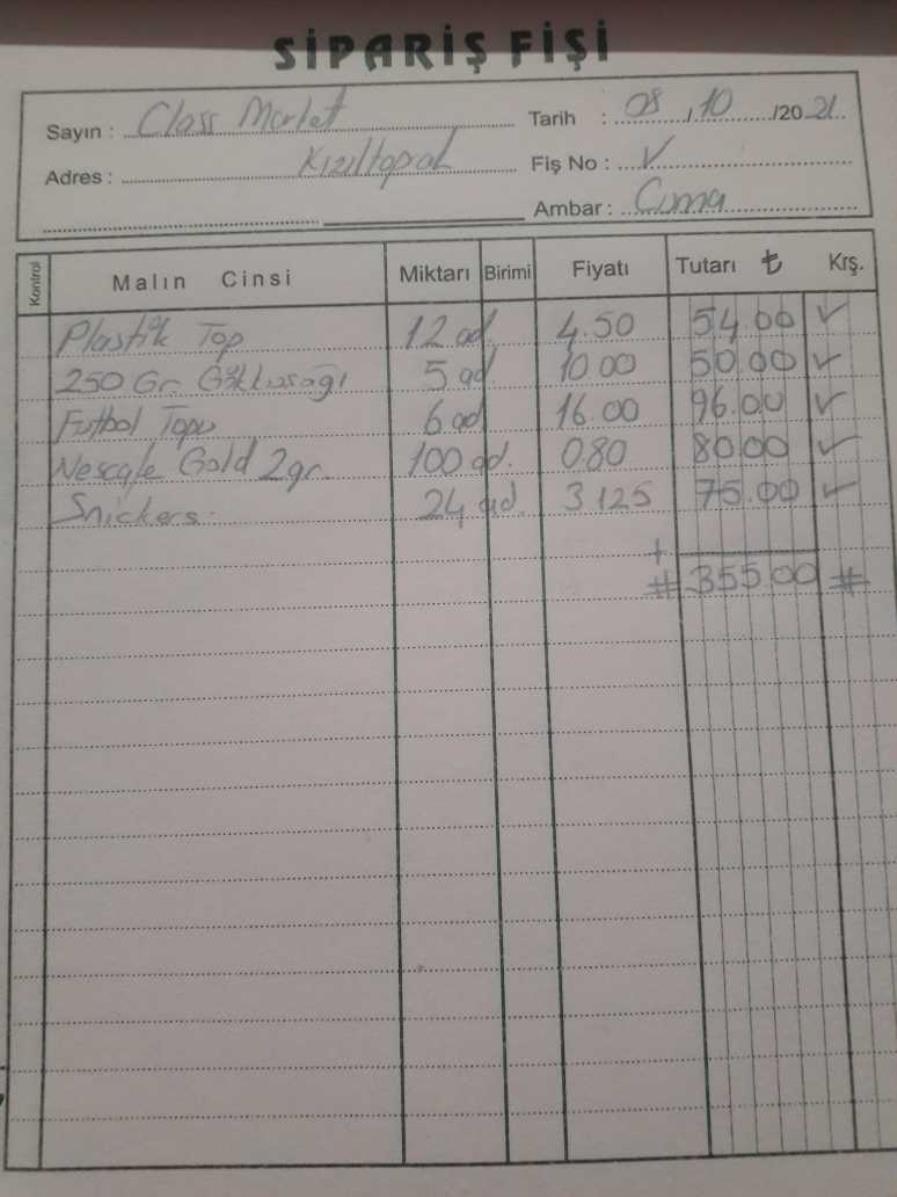 SİPARİŞ FİŞİ
Sayın : Class Market Tarih : 08 / 10 /20 21
Adres : Kızıltoprak Fiş No : V
Ambar : Cuma
Kontrol Malın Cinsi Miktarı Birimi Fiyatı Tutarı ₺ Krş.
Plastik Top 12 ad. 4.50 54.00 ✓
250 Gr. 5 ad 10 00 50.00 ✓
Futbol Topu 6 ad 16.00 96.00 ✓
Nescafe Gold 2gr. 100 ad. 080 80.00 ✓
Snickers. 24 ad. 3 125 75.00 ✓
+
# 355.00 #